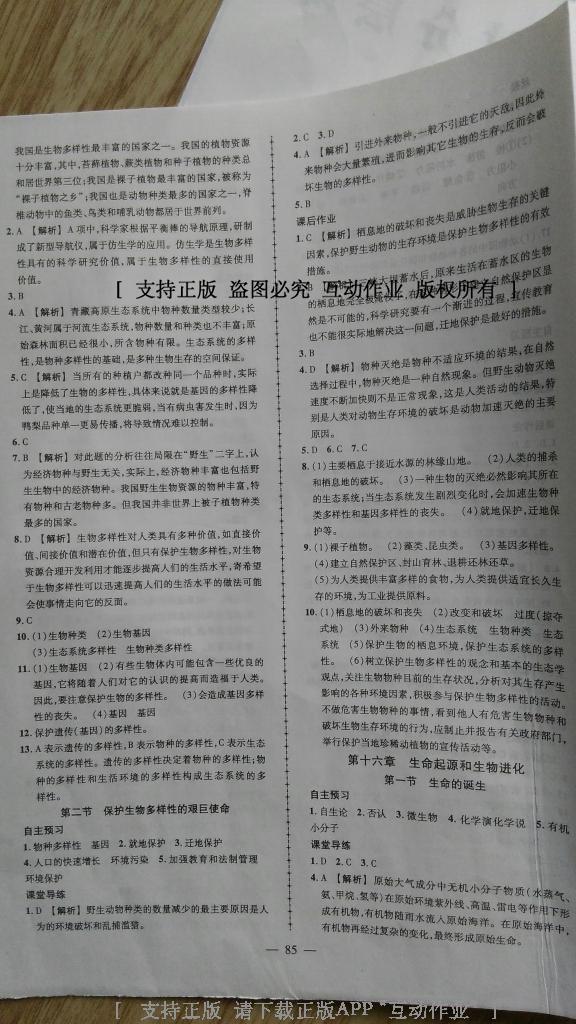 我国是生物多样性最丰富的国家之一。我国的植物资源
十分丰富,其中,苔藓植物、蕨类植物和种子植物的种类总
和居世界第三位;我国是裸子植物最丰富的国家,被称为
“裸子植物之乡”;我国也是动物种类最多的国家之一,脊
椎动物中的鱼类、鸟类和哺乳动物都居于世界前列。
2. A 【解析】A项中,科学家根据平衡棒的导航原理,研制
成了新型导航仪,属于仿生学的应用。仿生学是生物多样
性具有的科学研究价值,属于生物多样性的直接使用
价值。
3. B
4. A 【解析】青藏高原生态系统中物种数量类型较少;长
江、黄河属于河流生态系统,物种数量和种类也不丰富;原
始森林面积已经很小,所含物种有限。生态系统的多样
性,是物种多样性的基础,是多种生物生存的空间保证。
5. C 【解析】当所有的种植户都改种同一个品种时,实际
上是降低了生物的多样性,具体来说就是基因的多样性降
低了,使当地的生态系统更脆弱,当有病虫害发生时,因为
鸭梨品种单一更易传播,将导致情况难以控制。
6. C
7. B 【解析】对此题的分析往往局限在“野生”二字上,认
为经济物种与野生无关,实际上,经济物种丰富也包括野
生生物中的经济物种。我国野生生物资源的物种丰富,特
有物种和古老物种多。但我国并非世界上被子植物种类
最多的国家。
8. D 【解析】生物多样性对人类具有多种价值,如直接价
值、间接价值和潜在价值,但只有保护生物多样性,对生物
资源合理开发利用才能逐步提高人们的生活水平,寄希望
于生物多样性可以迅速提高人们的生活水平的做法可能
会使事情走向它的反面。
9. C
10. (1)生物种类 (2)生物基因
(3)生态系统多样性 生物种类多样性
11. (1)生物基因 (2)有些生物体内可能包含一些优良的
基因,它将随着人们对它的认识的提高而造福于人类。
因此,要注意保护生物的多样性。 (3)会造成基因多样
性的丧失。 (4)基因 基因
12. 保护遗传(基因)的多样性。
13. A表示遗传的多样性,B表示物种的多样性,C表示生态
系统的多样性。遗传的多样性决定着物种的多样性;物
种的多样性和生活环境的多样性构成生态系统的多
样性。
第二节 保护生物多样性的艰巨使命
自主预习
1. 物种多样性 基因 2. 就地保护 3. 迁地保护
4. 人口的快速增长 环境污染 5. 加强教育和法制管理
环境保护
课堂导练
1. D 【解析】野生动物种类的数量减少的最主要原因是人
为的环境破坏和乱捕滥猎。
2. C 3. D
4. A 【解析】引进外来物种,一般不引进它的天敌,因此外
来物种会大量繁殖,进而影响其它生物的生存,反而会破
坏生物的多样性。
5. B
课后作业
1. C 【解析】栖息地的破坏和丧失是威胁生物生存的关键
因素,保护野生动物的生存环境是保护生物多样性的有效
措施。
大坝蓄水后,原来生活在蓄水区的生物
的栖息地完全被淹没了,在 自然保护区是
然是不可能的,科学研究要有一个渐进的过程,宣传教育
也不能很实际地解决这一问题,迁地保护是最好的措施。
3. B
4. D 【解析】物种灭绝是物种不适应环境的结果,在自然
选择过程中,物种灭绝是一种自然现象。但野生动物灭绝
速度不断加快则不是正常现象,这是人类活动的结果,特
别是人类对动物生存环境的破坏是动物加速灭绝的主要
原因。
5. D 6. C 7. C
8. (1)主要栖息于接近水源的林缘山地。 (2)人类的捕杀
和栖息地的破坏。 (3)一种生物的灭绝必然影响其所在
的生态系统;当生态系统发生剧烈变化时,会加速生物种
类多样性和基因多样性的丧失。 (4)就地保护,迁地保
护等。
9. (1)裸子植物。 (2)藻类、昆虫类。 (3)基因多样性。
(4)建立自然保护区、封山育林、退耕还林还草。
(5)为人类提供丰富多样的食物,为人类提供适宜长久生
存的环境,为工业提供原料。
10. (1)栖息地的破坏和丧失 (2)改变和破坏 过度(掠夺
式地) (3)外来物种 (4)生态系统 生物种类 生态
系统 (5)保护生物的栖息环境,保护生态系统的多样
性。 (6)树立保护生物多样性的观念和基本的生态学
观点,关注生物物种目前的生存状况,分析对其生存产生
影响的各种环境因素,积极参与保护生物多样性的活动。
不做危害生物物种的事情,看到他人有危害生物物种和
破坏生物生存环境的行为,应制止并报告有关政府部门,
举行保护当地珍稀动植物的宣传活动等。
第十六章 生命起源和生物进化
第一节 生命的诞生
自主预习
1. 自生论 2. 否认 3. 微生物 4. 化学演化学说 5. 有机
小分子
课堂导练
1. D 2. C 3. C
4. A 【解析】原始大气成分中无机小分子物质(水蒸气、
氨、甲烷、氢等)在原始环境紫外线、高温、雷电等作用下形
成有机物,有机物随雨水流入原始海洋。在原始海洋中,
有机物再经过复杂的变化,最终形成原始生命。
— 85 —
[ 支持正版 盗图必究 互动作业 版权所有 ]
[ 支持正版 请下载正版APP“互动作业” ]